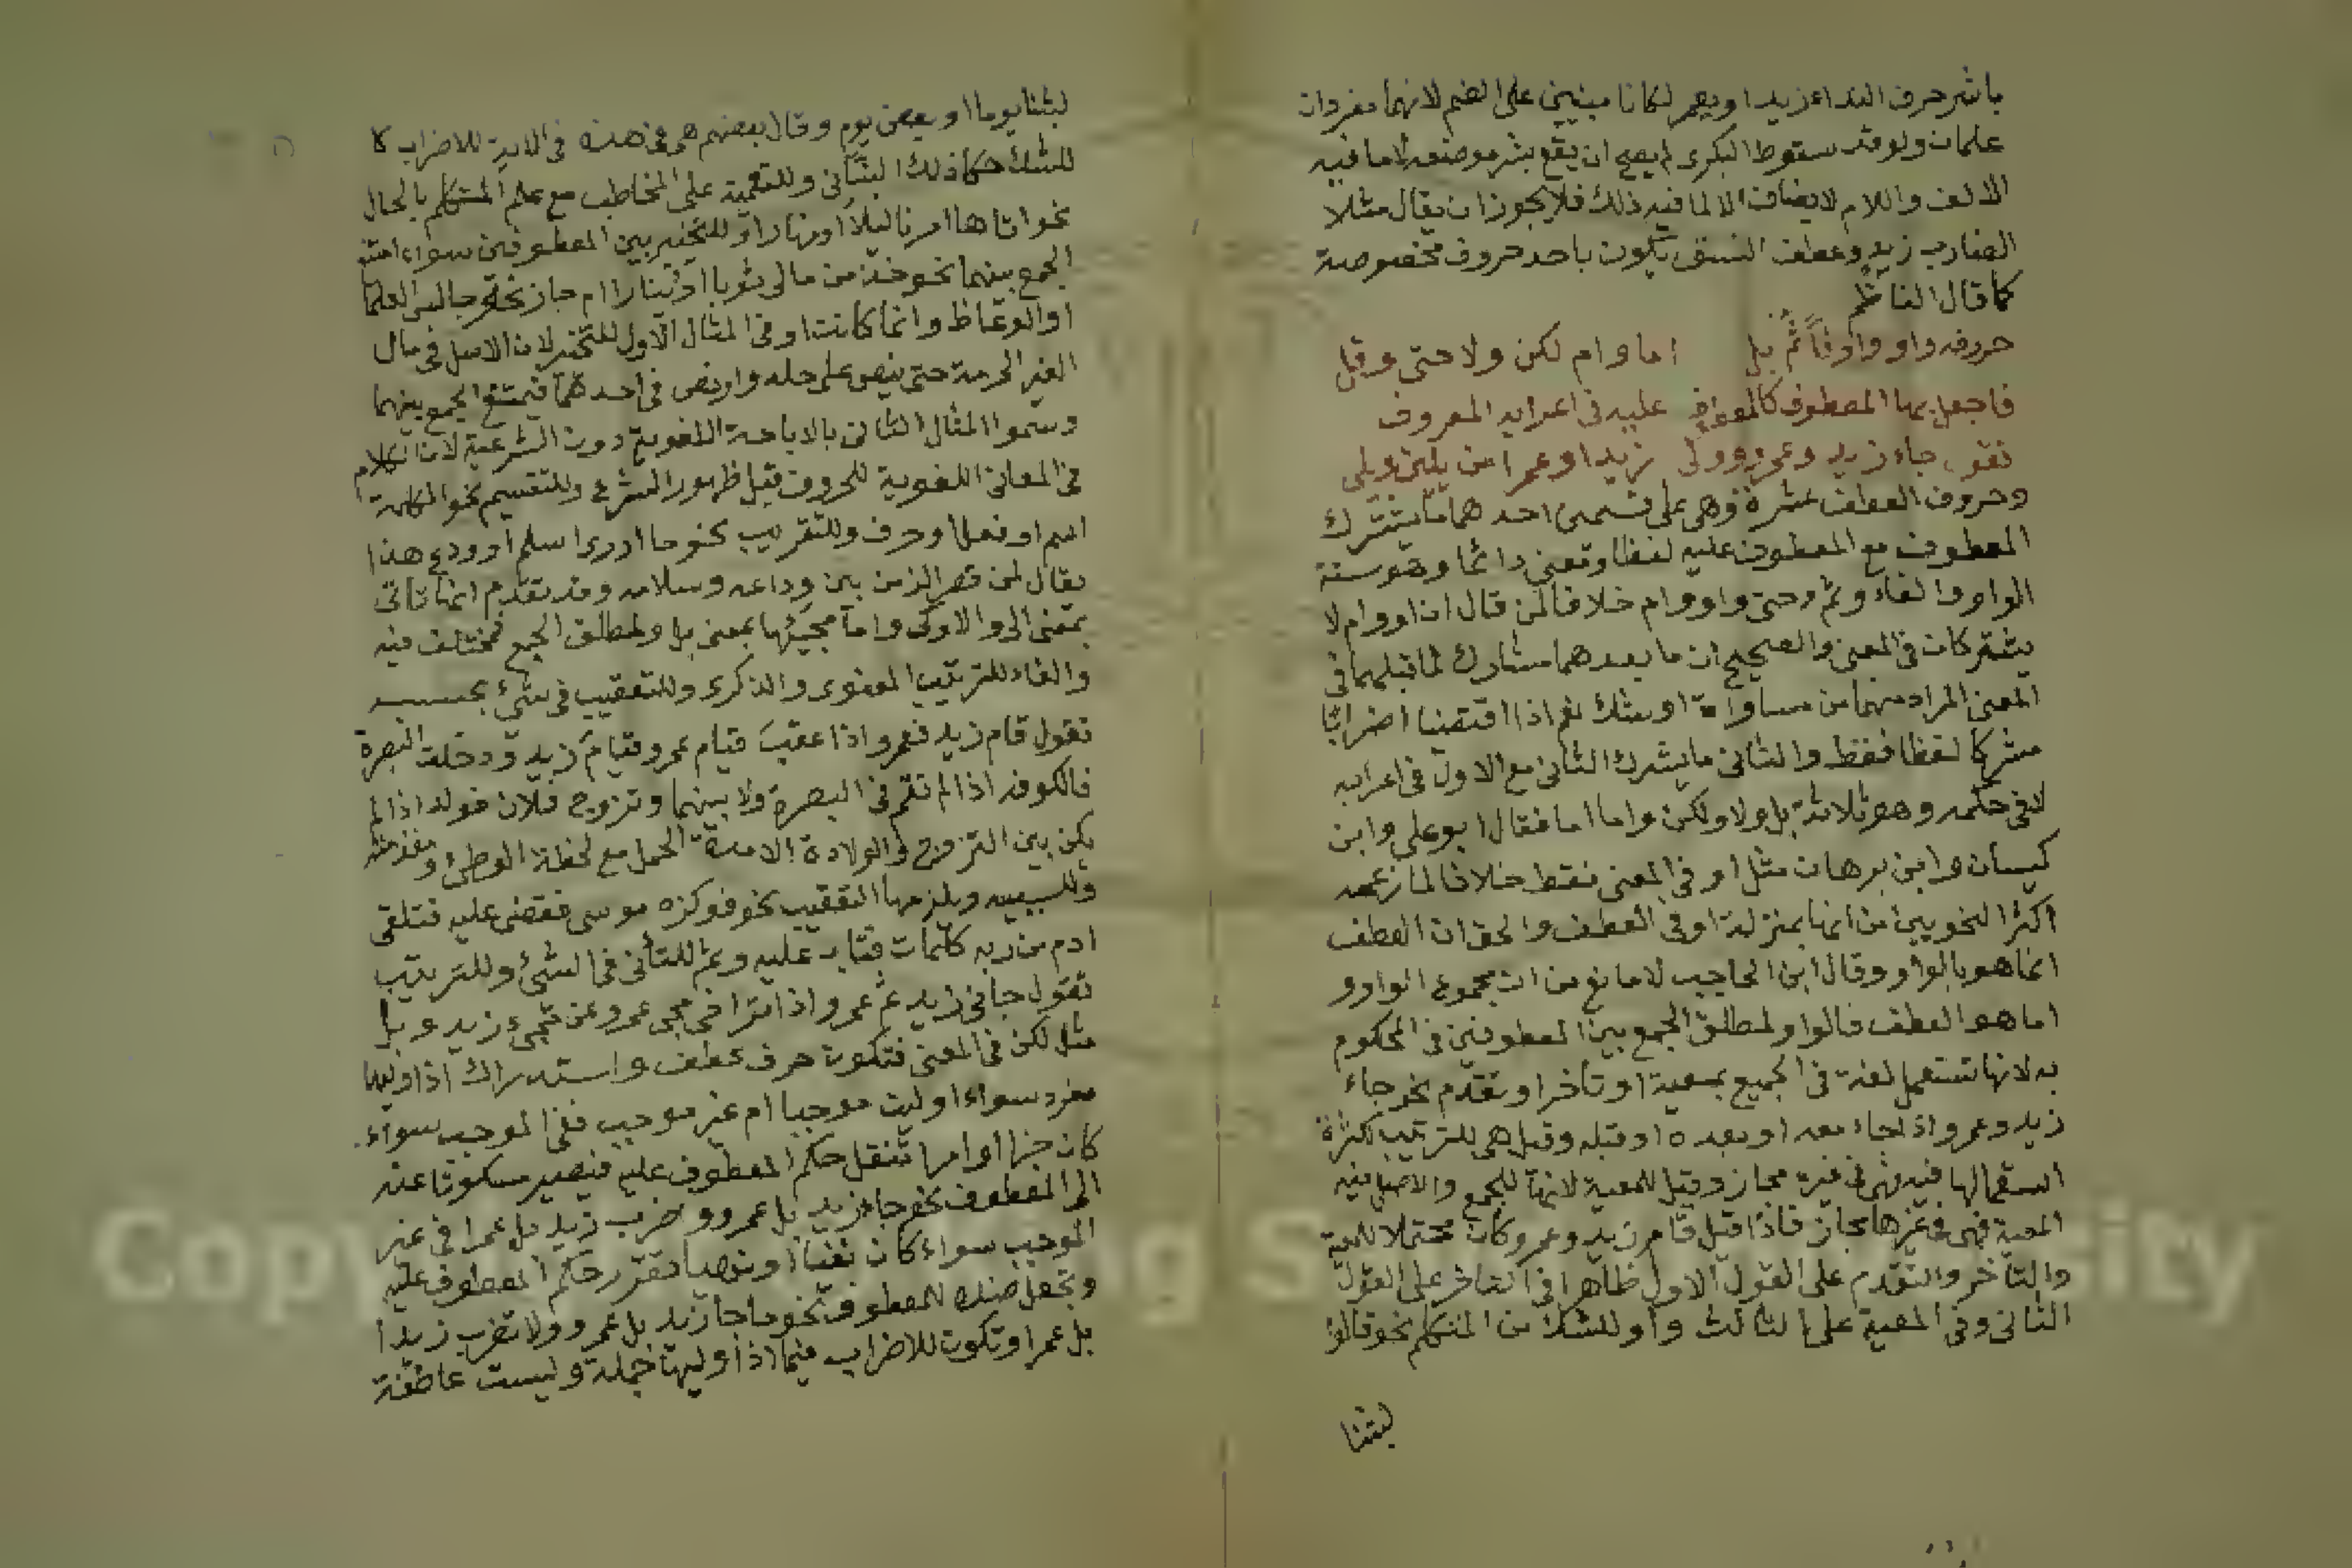 باشر حرف النداء زيدا ويعمر لكانا مبنيين على الضم لانهما مفردان
علمان ولو قد سقوط البكرى لم يصح ان يقع بشر موضعه لان ما فيه
الالف واللام لا يضاف الا لما فيه ذلك فلا يجوز ان يقال مثلا
الضارب زيد وعطف النسق يكون باحد حروف مخصوصة
كما قال الناظم
حروفه واو واو فا ثم بل اما وام لكن ولا حتى وقيل
فاجعل بها المعطوف كالمعطوف عليه فى اعرابه المعروف
تقول جاء زيد وعمرو وولى زيدا وعمرا من يلين ويلى
وحروف العطف عشرة وهى على قسمين احدهما ما يشترك
المعطوف مع المعطوف عليه لفظا ومعنى دائما وهو ستة
الواو والفاء وثم وحتى واو وام خلافا لمن قال ان او وام لا
يشتركان فى المعنى والصحيح ان ما بعدهما مشارك لما قبلهما فى
المعنى المراد منهما من مساواة او شك نعم اذا اقتضينا اضرابا
شركا لفظا فقط والثانى ما يشرك الثانى مع الاول فى اعرابه
لا فى حكمه وهو ثلاثة بل ولا ولكن واما اما فقال ابو على وابن
كيسان وابن برهان مثل او فى المعنى فقط خلافا لما زعمه
اكثر النحويين من انها بمنزلة او فى العطف والحق ان العطف
انما هو بالواو وقال ابن الحاجب لا مانع من ان مجموع الواو و
اما هو العطف فالواو لمطلق الجمع بين المعطوفين فى المحكوم
به لانها تستعمل لغة فى الجميع بمعية او تأخر او تقدم نحو جاء
زيد وعمرو اذا جاء معه او بعده او قبله وقيل هى للترتيب لكثرة
استعمالها فيه فهى فى غيره مجاز وقيل للمعية لانها للجمع والاصل فيه
المعية فهى فى غيرها مجاز فاذا قيل قام زيد وعمرو كان محتملا للمعية
والتأخر والتقدم على القول الاول ظاهرا فى التاخر على القول
الثانى وفى المعية على الثالث واو للشك من المتكلم نحو قالوا
لبثنا
لبثنا يوما او بعض يوم وقال بعضهم هى فى هذه الاية للاضراب لا
للشك حكا ذلك البنانى وللتعمية على المخاطب مع علم المتكلم بالحال
نحو اتاها امرنا ليلا او نهارا وللتخيير بين المعطوفين سواء امتنع
الجمع بينهما نحو خذ من مالى ثوبا او دينارا ام جاز نحو جالس العلما
او الوعاظ وانما كانت او فى المثال الاول للتخير لان الاصل فى مال
الغير الحرمة حتى ينص على حله واو نص فى احدهما فيمتنع الجمع بينهما
وسموا المثال الثانى بالاباحة اللغوية دون الشرعية لان الكلام
فى المعانى اللغوية للحروف قبل ظهور الشرع وللتقسيم نحو الكلمة
اسم او فعل او حرف وللتقريب نحو ما ادرى اسلم او ودع هذا
يقال لمن قصر الزمن بين وداعه وسلامه وقد تقدم انها تاتى
بمعنى الى والا وكى واما مجيئها بمعنى بل ولمطلق الجمع فمختلف فيه
والفاء للترتيب المعنوى والذكرى وللتعقيب فى شئ بحسبه
تقول قام زيد فعمرو اذا عقب قيام عمرو قيام زيد ودخلت البصرة
فالكوفه اذا لم تقم فى البصرة ولا بينهما وتزوج فلان فولد اذا لم
يكن بين التزوج والولادة الا مدة الحمل مع لحظة الوطئ ومقدمته
وللسببيه ويلزمها التعقيب نحو فوكزه موسى فقضى عليه فتلقى
ادم من ربه كلمات فتاب عليه وثم للتأنى فى الشئ وللترتيب
تقول جانى زيد ثم عمرو اذا تراخى مجى عمرو عن مجيء زيد وبل
مثل لكن فى المعنى فتكون حرف عطف واستدراك اذا وليها
مفرد سواء اوليت موجبا ام غير موجب ففى الموجب سواء
كان خبرا او امرا تنقل حكم المعطوف عليه فيصير مسكوتا عنه
الى المعطوف نحو جاء زيد بل عمرو واضرب زيد بل عمرا فى غير
الموجب سواء كان نفيا او نهيا تقرر حكم المعطوف عليه
وتجعل ضده للمعطوف نحو ما جا زيد بل عمرو ولا تضرب زيدا
بل عمرا وتكون للاضراب فيما اذا وليها جملة وليست عاطفة
Copy King S sity